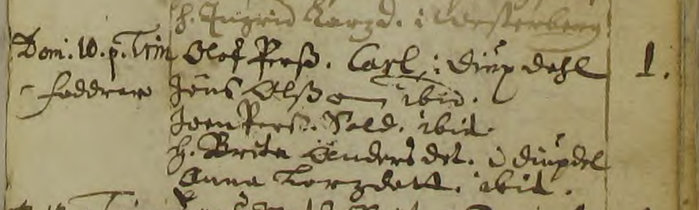 h. Ingrid Larzd. i Westerberg
Dom. 10. p. Trin Olof Perß. Carl i Diupdahl 1.
faddrar Jöns Olß ibid.
Joen Perß. Sold. ibid.
h. Brita Andersdot. i Diupdal
Anna Larzdott. ibid.